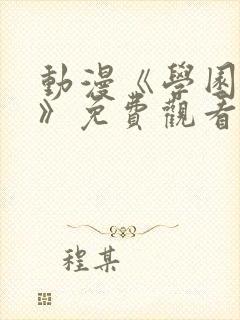 動漫《學園
》免費觀看
程某